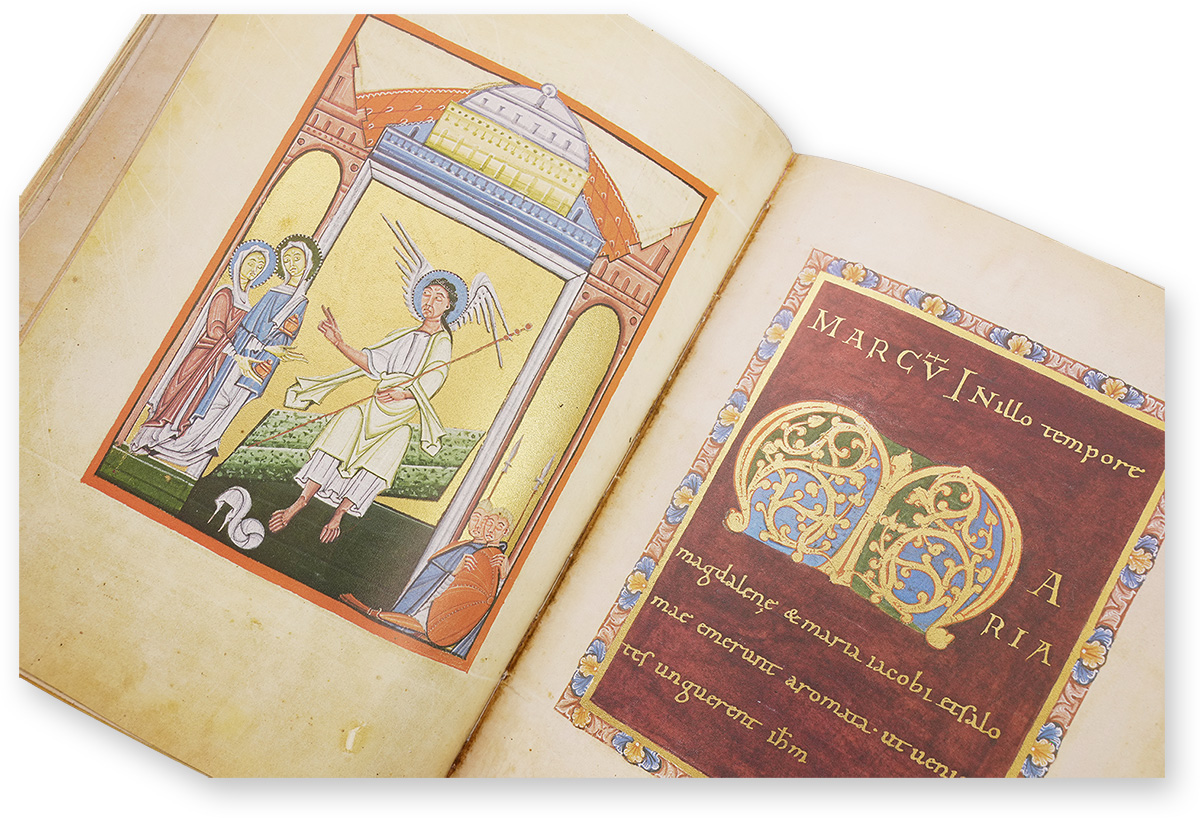 MARCV INillo tempore
M A
RIA
magdalenę & maria iacobi et salo
mae emerunt aromata · ut ueni
tes unguerent ihm